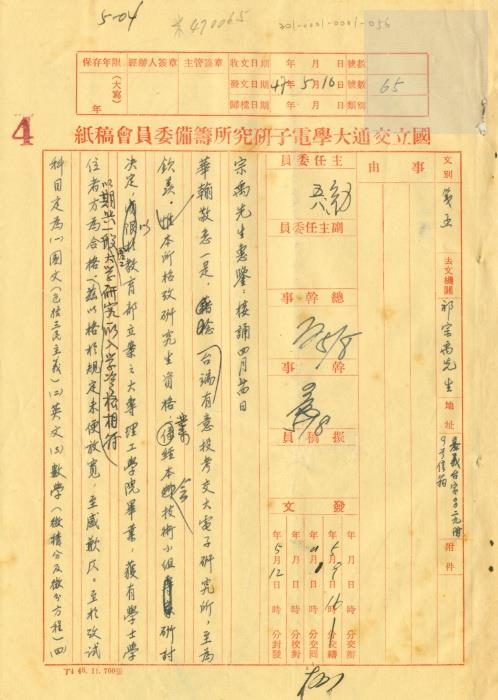 5-04
470065
201-0001-0001-056
保存年限
(大寫)
年
經辦人簽章
主管簽章
收文日期 年 月 日
發文日期 47年5月16日
歸檔日期 年 月 日
號數
號數 65
類別
4
國立交通大學電子研究所籌備委員會稿紙
文別
去文機關 祁宗禹先生
地址
9号信箱
附件
事由
主任委員
副主任委員
總幹事
5/8
幹事
5/8
擬稿員
發文
年 月 日 時 分交辦
年5月9日16時 分交繕
年 月 日 時 分交回
年 月 日 時 分校對
年5月12日 時 分封發
宗禹先生惠鑒:接誦四月廿日
華翰敬悉一是,台端有意投考交大電子研究所,至為
欽羨,惟本所格致研究生資格,業經本會技術小組研討
決定,以教育部立案之大專理工學院畢業,獲有學士學
位者方為合格,
以期與一般大学研究以入学資格相符
茲以格於規定未便放寬,至感歉仄。至於考試
科目定為(一)國文(包括三民主義)(二)英文(三)數學(微積分及微分方程)(四)
T4 46. 11. 700張